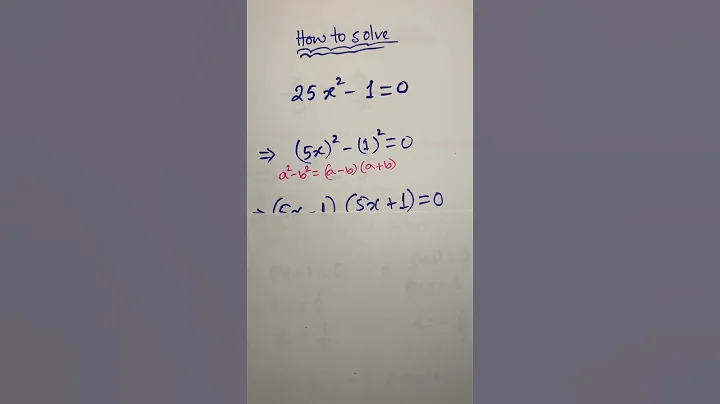 How to solve
25x² - 1 = 0
⇒ (5x)² - (1)² = 0
a² - b² = (a-b)(a+b)
⇒ (5x - 1) (5x + 1) = 0